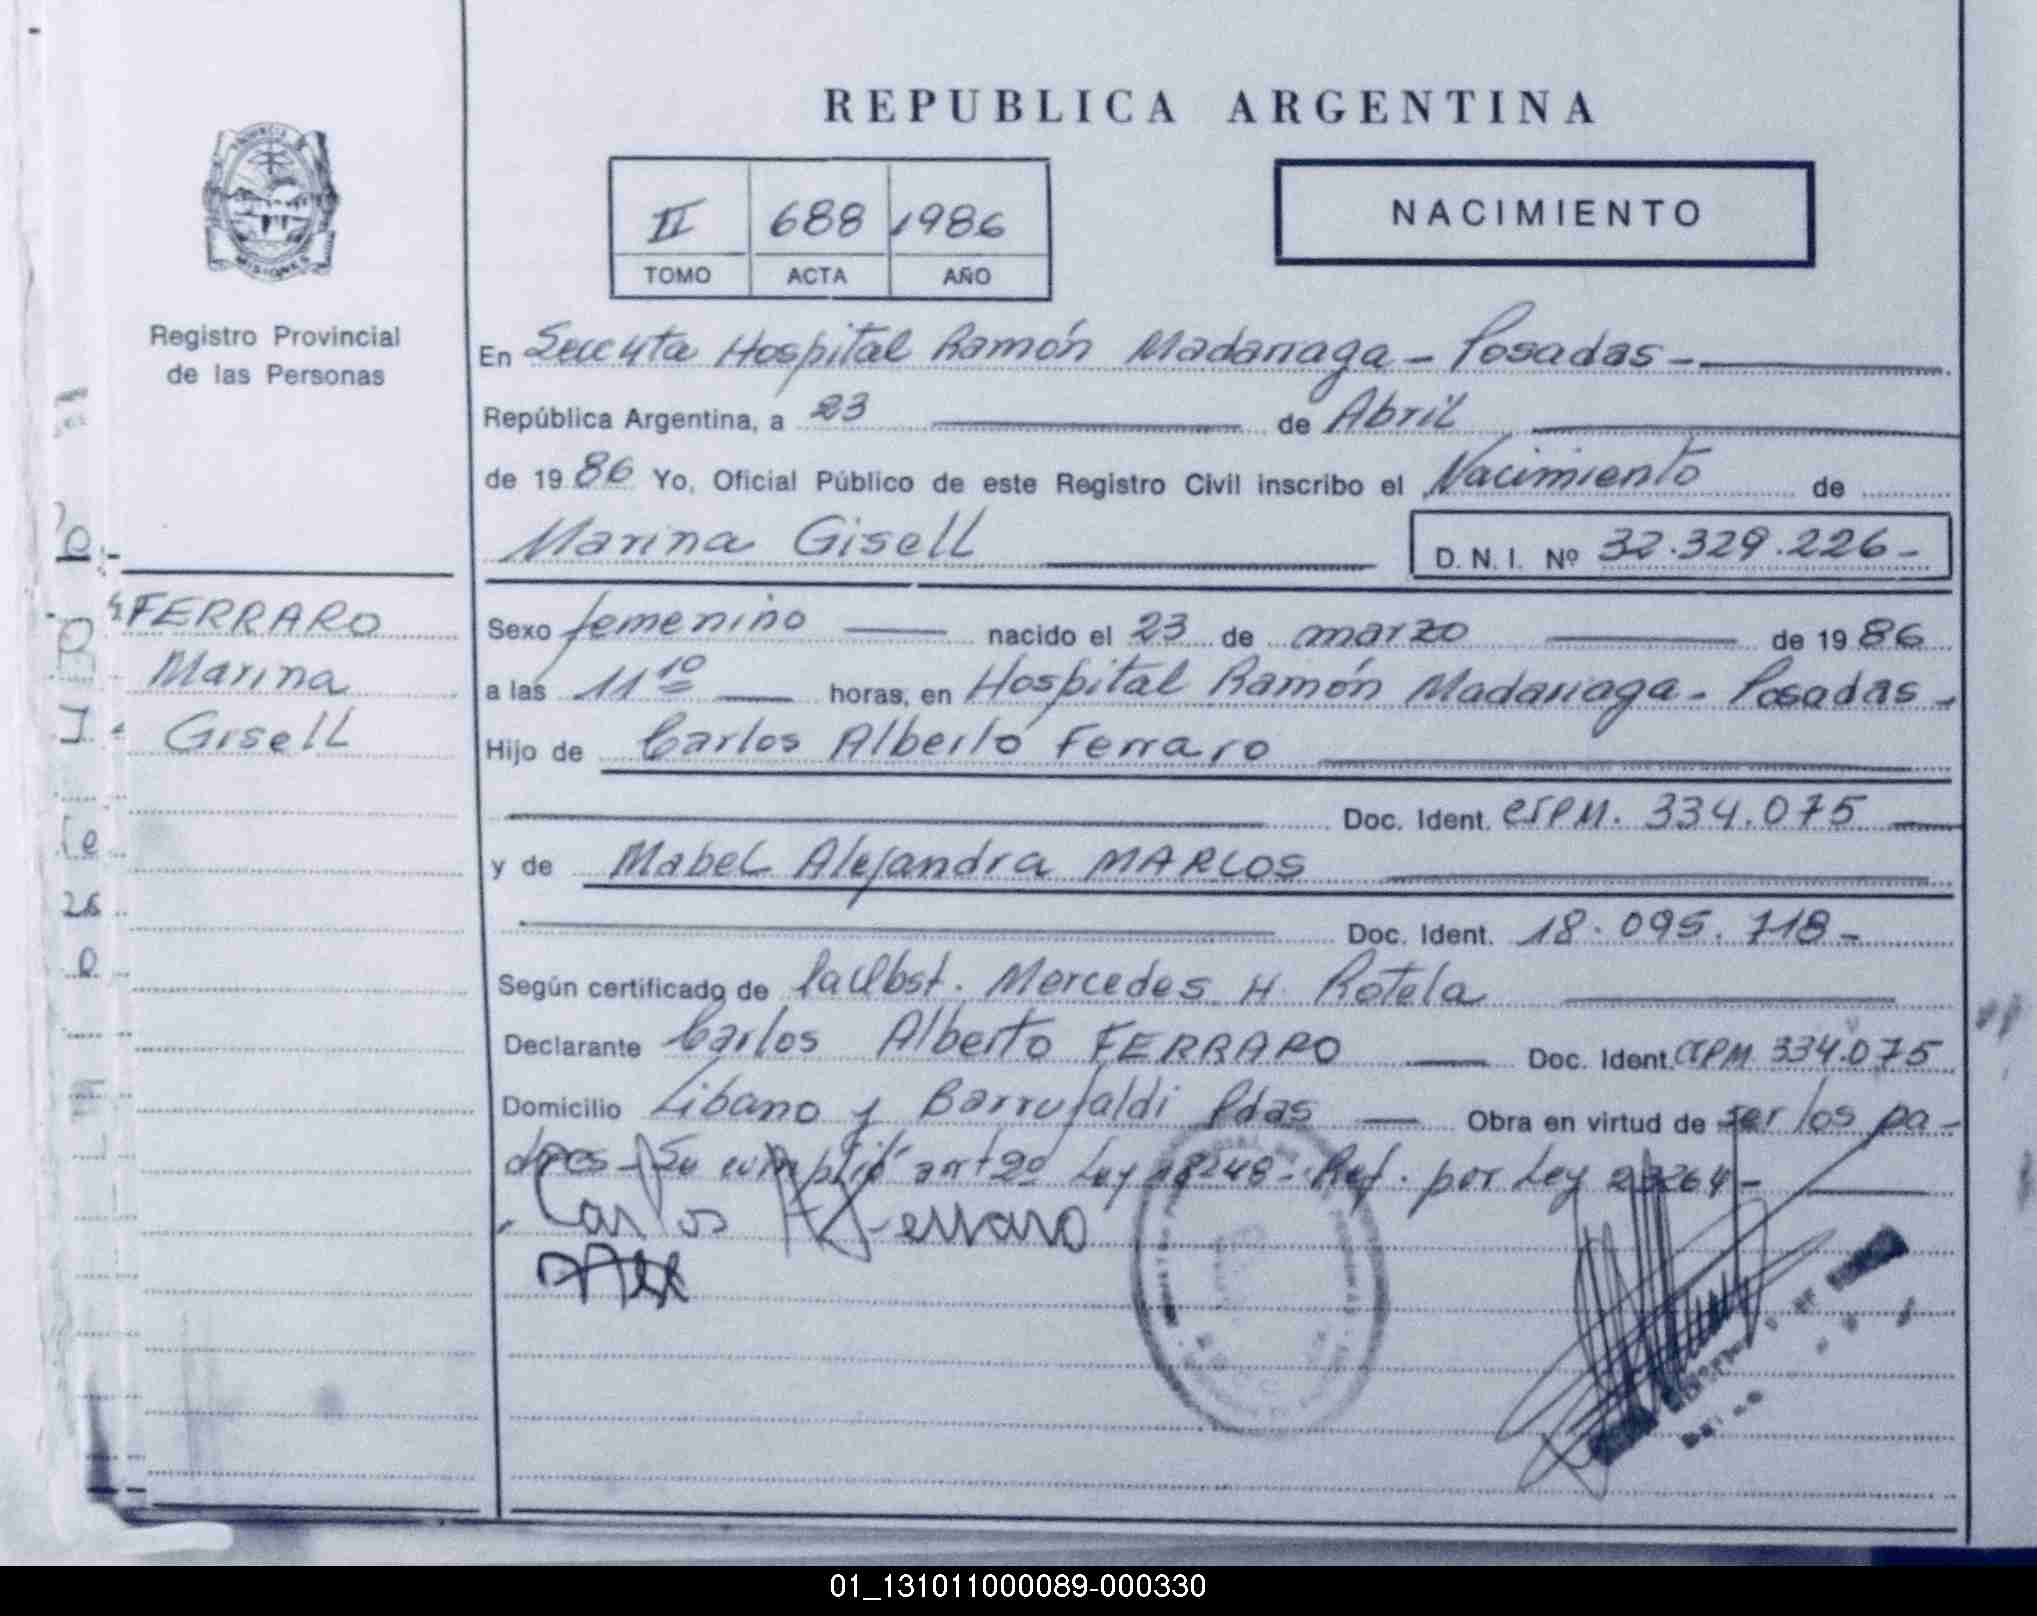 REPUBLICA ARGENTINA
II 688 1986
TOMO ACTA AÑO
NACIMIENTO
MISIONES
Registro Provincial
de las Personas
FERRARO
Marina
Gisell
En Hospital Ramón Madariaga - Posadas -
República Argentina, a 23 de Abril
de 1986 Yo, Oficial Público de este Registro Civil inscribo el Nacimiento de
Marina Gisell D. N. I. Nº 32.329.226-
Sexo femenino nacido el 23 de marzo de 1986
a las 11 10 horas, en Hospital Ramón Madariaga - Posadas -
Hijo de Carlos Alberto Ferraro
Doc. Ident. CIPM. 334.075
y de Mabel Alejandra MARCOS
Doc. Ident. 18.095.718-
Según certificado de la Obst. Mercedes H. Rotela
Declarante Carlos Alberto FERRARO Doc. Ident. CIPM 334.075
Domicilio Libano y Barrufaldi Pdas Obra en virtud de ser los pa-
dres - Se cumplió art 2º Ley 18248 - Ref. por Ley 23264 -
Carlos A Ferraro
01_131011000089-000330